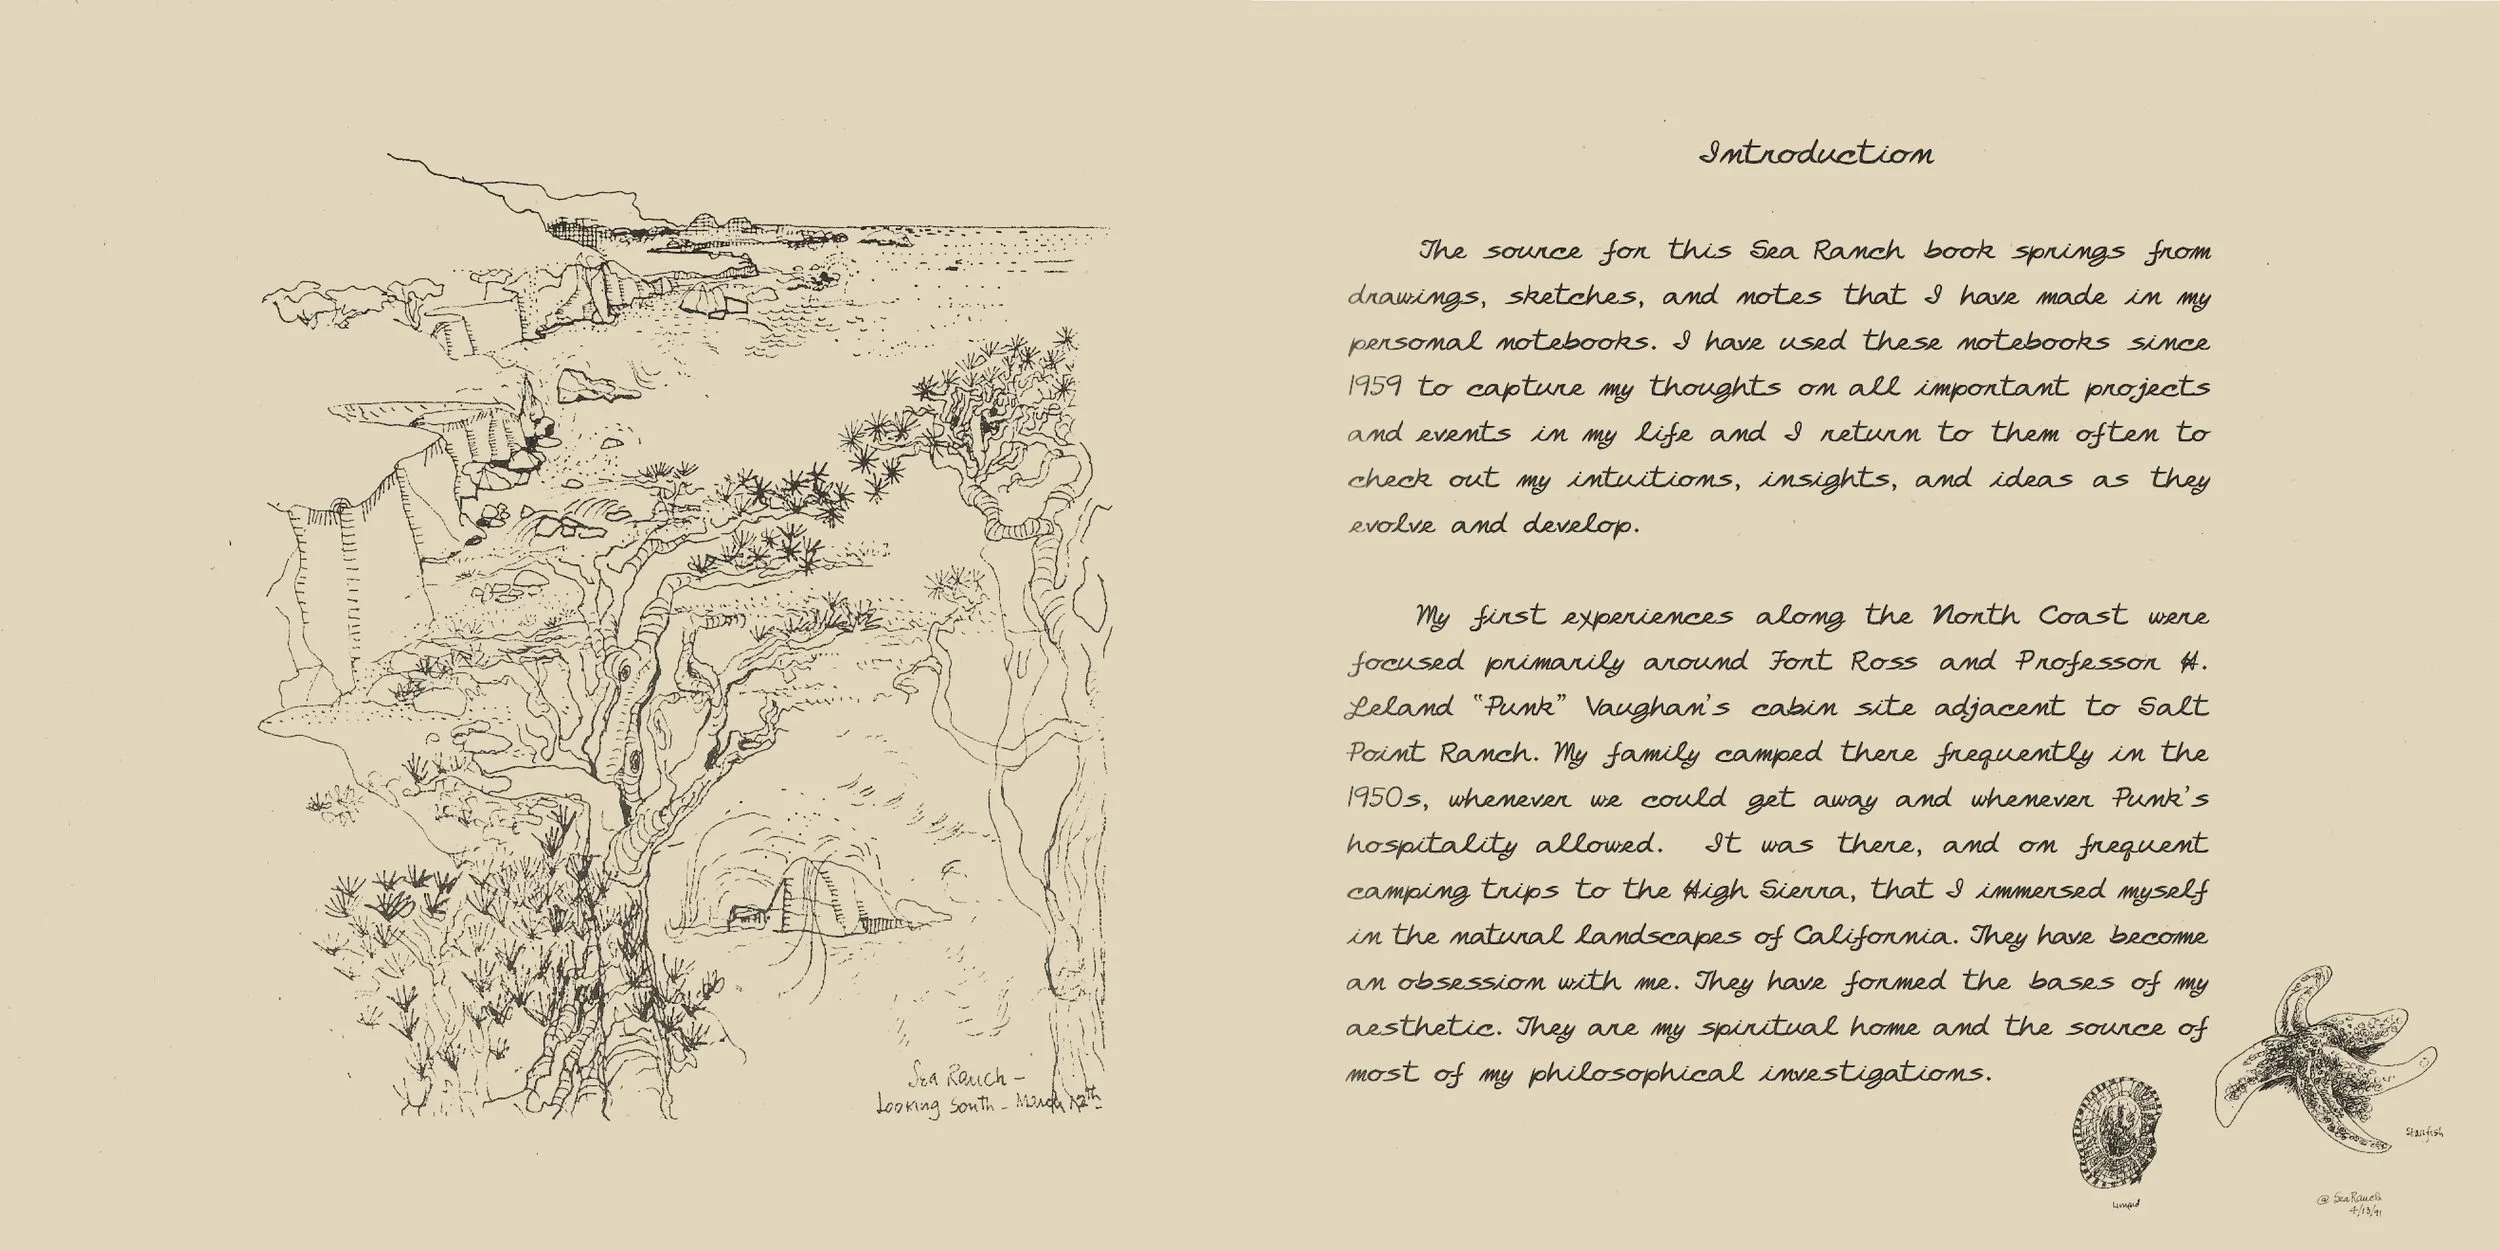 Sea Ranch –
Looking South – March 12th
Introduction
The source for this Sea Ranch book springs from
drawings, sketches, and notes that I have made in my
personal notebooks. I have used these notebooks since
1959 to capture my thoughts on all important projects
and events in my life and I return to them often to
check out my intuitions, insights, and ideas as they
evolve and develop.
My first experiences along the North Coast were
focused primarily around Fort Ross and Professor H.
Leland “Punk” Vaughan’s cabin site adjacent to Salt
Point Ranch. My family camped there frequently in the
1950s, whenever we could get away and whenever Punk’s
hospitality allowed. It was there, and on frequent
camping trips to the High Sierra, that I immersed myself
in the natural landscapes of California. They have become
an obsession with me. They have formed the bases of my
aesthetic. They are my spiritual home and the source of
most of my philosophical investigations.
Starfish
@ Sea Ranch
4/13/91